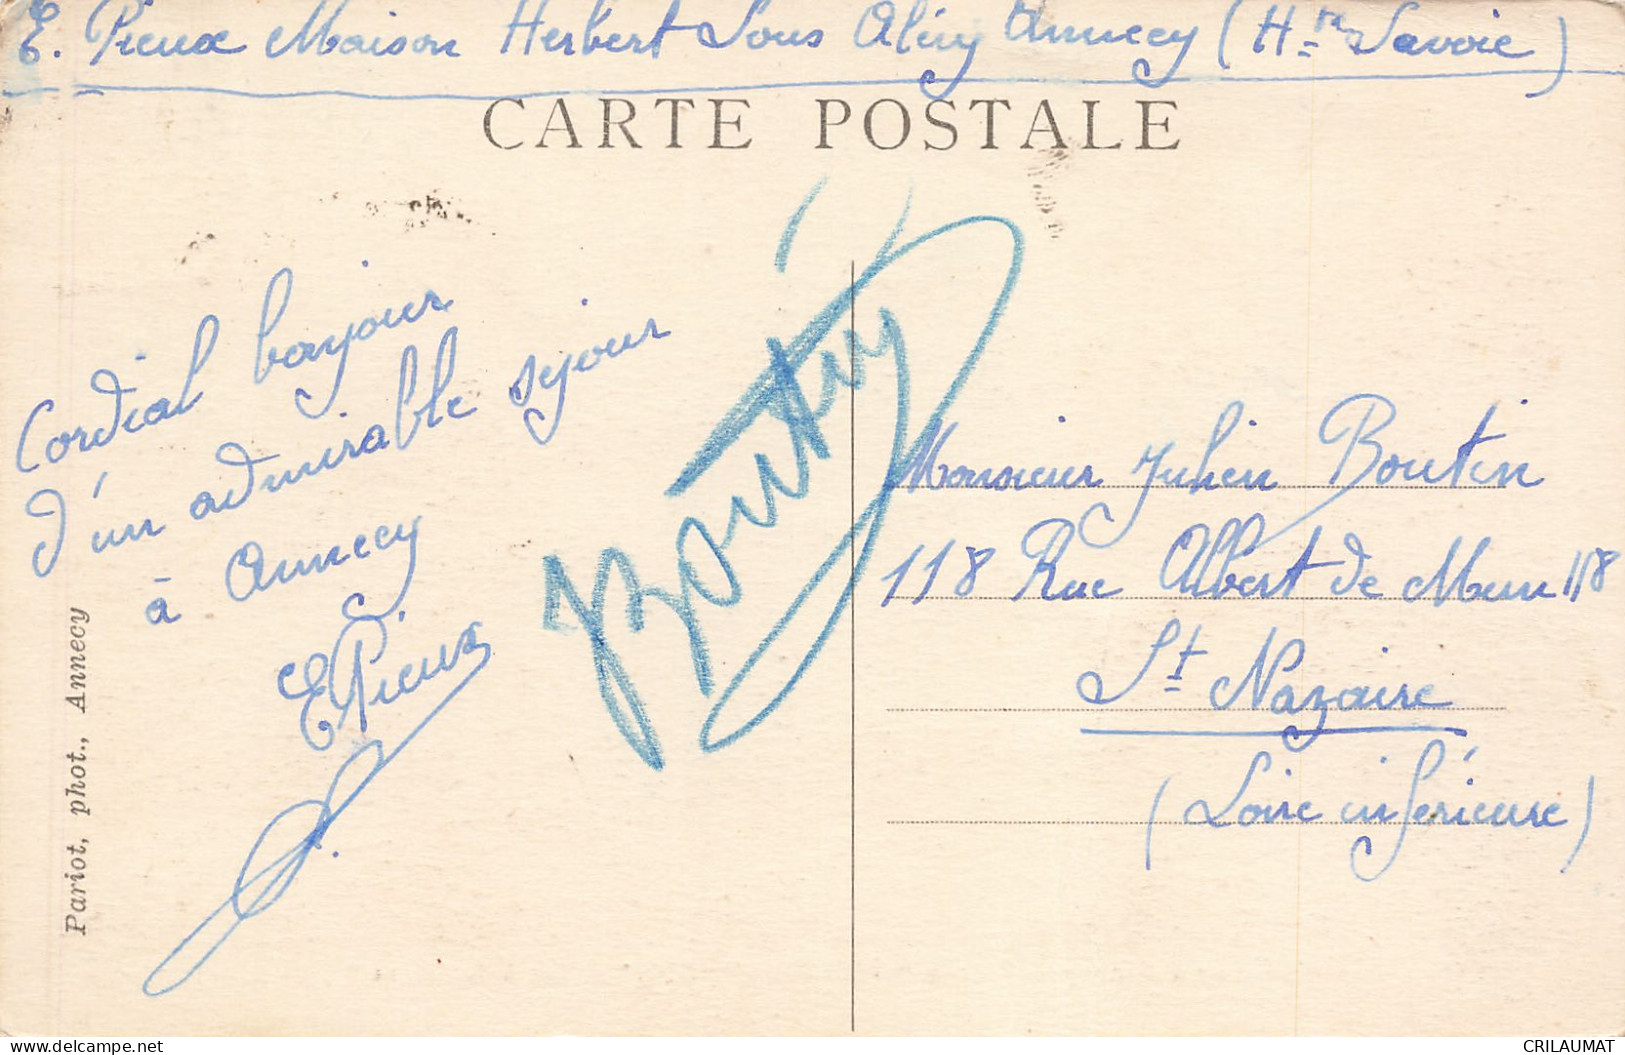 E. Pieux Maison Herbert Sous Aléry Annecy (Hte Savoie)
CARTE POSTALE
Cordial bonjour
d'un admirable séjour
à Annecy
EPieux
Boutin
Monsieur Julien Boutin
118 Rue Albert de Mun 118
St Nazaire
(Loire inférieure)
Pariot, phot., Annecy
CRILAUMAT